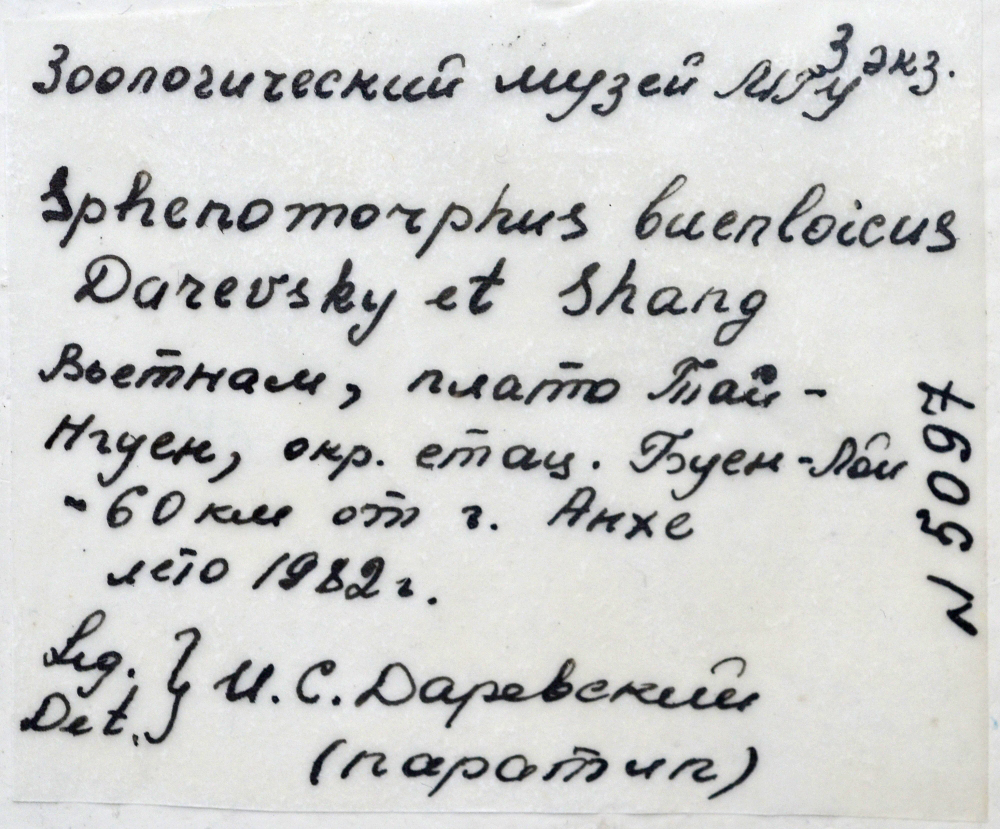 Зоологический музей МГУ 3 экз.
Sphenomorphus buenloicus
Darevsky et Shang
Вьетнам, плато Тай-
Нгуен, окр. стац. Буен-Лой
-60 км от г. Анхе
лето 1982 г.
Leg. } И. С. Даревский
Det.
(паратип)
N 5097